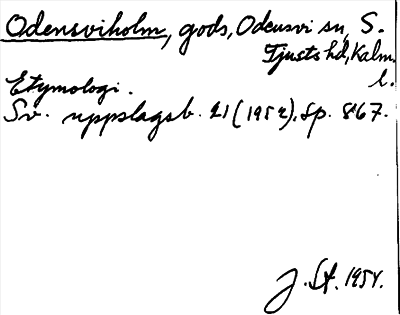 Odensviholm, gods, Odensvi sn, S.
Tjusts hd, Kalm.
l.
Etymologi.
Sv. uppslagsb. 21 (1952), sp. 867.
J. St. 1954.